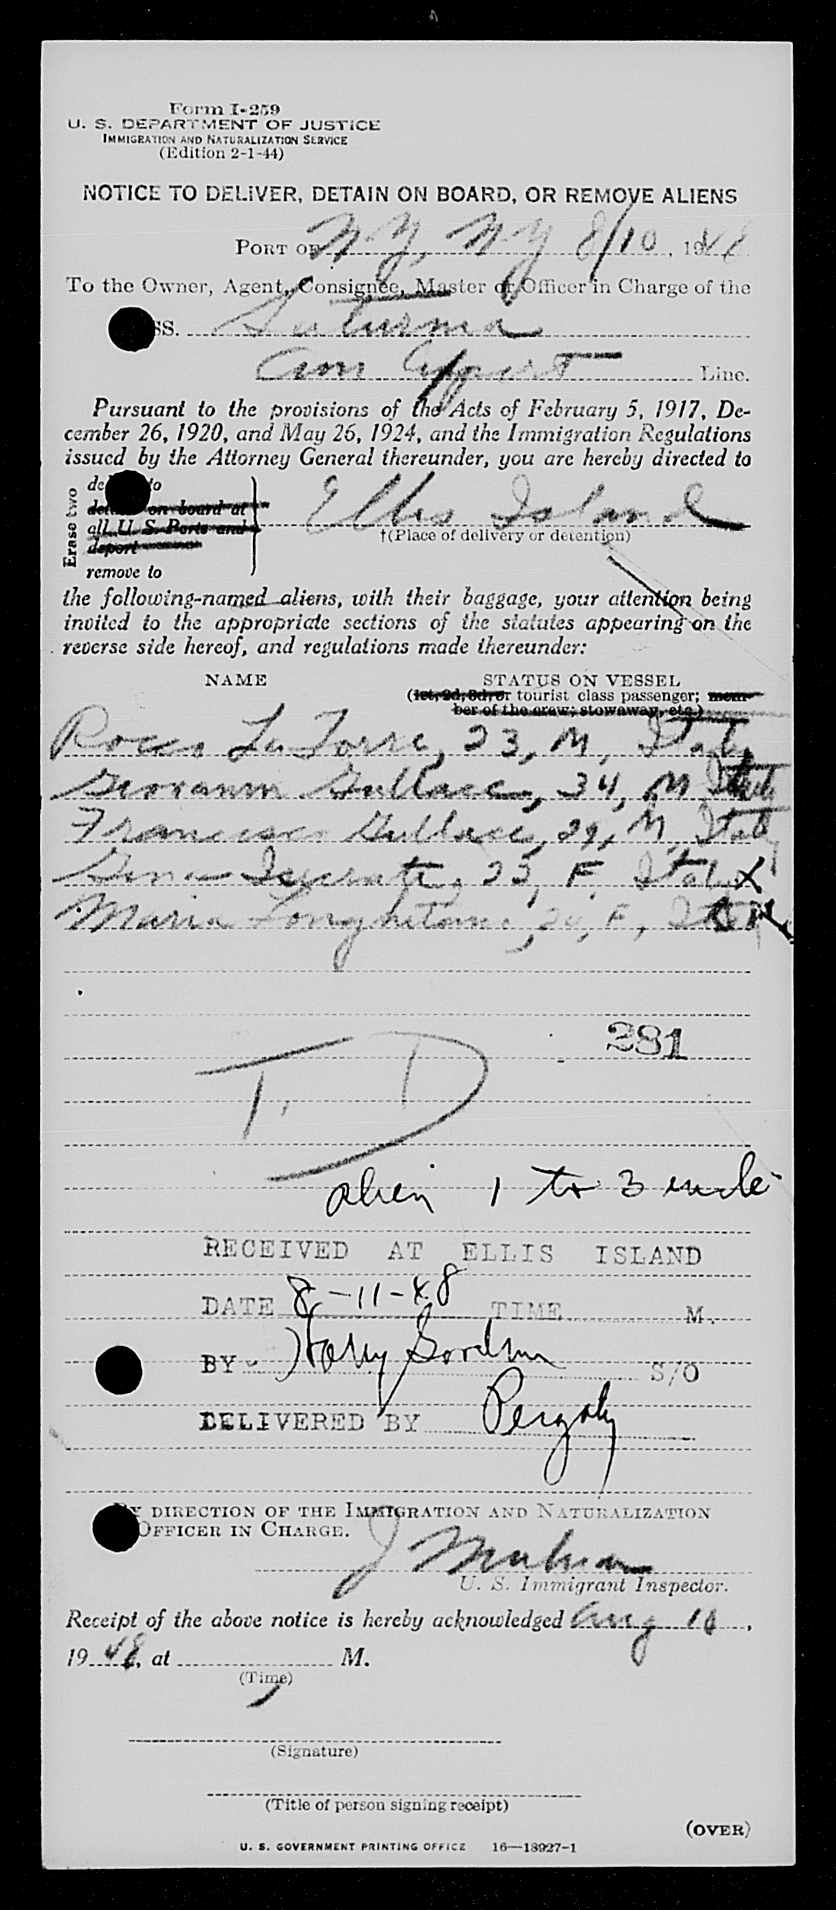 Form I-259
U. S. DEPARTMENT OF JUSTICE
IMMIGRATION AND NATURALIZATION SERVICE
(Edition 2-1-44)
NOTICE TO DELIVER, DETAIN ON BOARD, OR REMOVE ALIENS
PORT OF N Y, N Y 8/10, 1948
To the Owner, Agent, Consignee, Master or Officer in Charge of the
SS. Saturnia
Am Export Line.
Pursuant to the provisions of the Acts of February 5, 1917, De-
cember 26, 1920, and May 26, 1924, and the Immigration Regulations
issued by the Attorney General thereunder, you are hereby directed to
Erase two
to
on board at
all U. S. Ports and
deport
remove to
Ellis Island
†(Place of delivery or detention)
the following-named aliens, with their baggage, your attention being
invited to the appropriate sections of the statutes appearing on the
reverse side hereof, and regulations made thereunder:
NAME STATUS ON VESSEL
(1st, 2d, 3d, or tourist class passenger; mem-
ber of the crew; stowaway, etc.)
Rocco La Torre, 23, M, Italy
Giovanni Gullace, 34, M Italy
Francesco Gullace, 29, M, Italy
Gina 23, F, Italy X
Maria Longhitano, F,
281
T. D
alien 1 to 3 incle
RECEIVED AT ELLIS ISLAND
DATE 8-11-48 TIME M.
BY Harry Gordon S/O
DELIVERED BY
BY DIRECTION OF THE IMMIGRATION AND NATURALIZATION
OFFICER IN CHARGE.
U. S. Immigrant Inspector.
Receipt of the above notice is hereby acknowledged Aug 10,
1948, at M.
(Time)
(Signature)
(Title of person signing receipt)
(OVER)
U. S. GOVERNMENT PRINTING OFFICE 16—18927-1